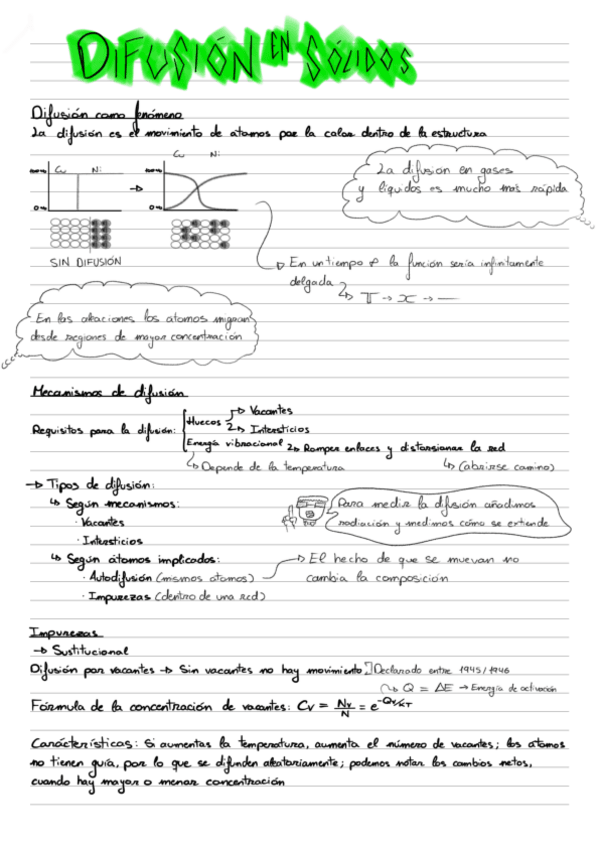 DIFUSIÓN EN SÓLIDOS
Difusión como fenómeno
La difusión es el movimiento de átomos por la calor dentro de la estructura
Cu Ni
Cu Ni
0%
0%
La difusión en gases
y líquidos es mucho más rápida
SIN DIFUSIÓN
En un tiempo ∞ la función sería infinitamente
delgada
En las aleaciones los átomos migran
desde regiones de mayor concentración
Mecanismos de difusión
Requisitos para la difusión:
Huecos → Vacantes
→ Intersticios
Energía vibracional → Romper enlaces y distorsionar la red
→ Depende de la temperatura
→ (abrirse camino)
→ Tipos de difusión:
↳ Según mecanismos:
· Vacantes
· Intersticios
Para medir la difusión añadimos
radiación y medimos cómo se extiende
↳ Según átomos implicados:
· Autodifusión (mismos átomos)
→ El hecho de que se muevan no
cambia la composición
· Impurezas (dentro de una red)
Impurezas
→ Sustitucional
Difusión por vacantes → Sin vacantes no hay movimiento] Declarado entre 1945/1946
→ Q = ΔE → Energía de activación
Fórmula de la concentración de vacantes: Cv = Nv/N = e^-Qv/KT
Carácterísticas: Si aumentas la temperatura, aumenta el número de vacantes; los átomos
no tienen guía, por lo que se difunden aleatoriamente; podemos notar los cambios netos,
cuando hay mayor o menor concentración